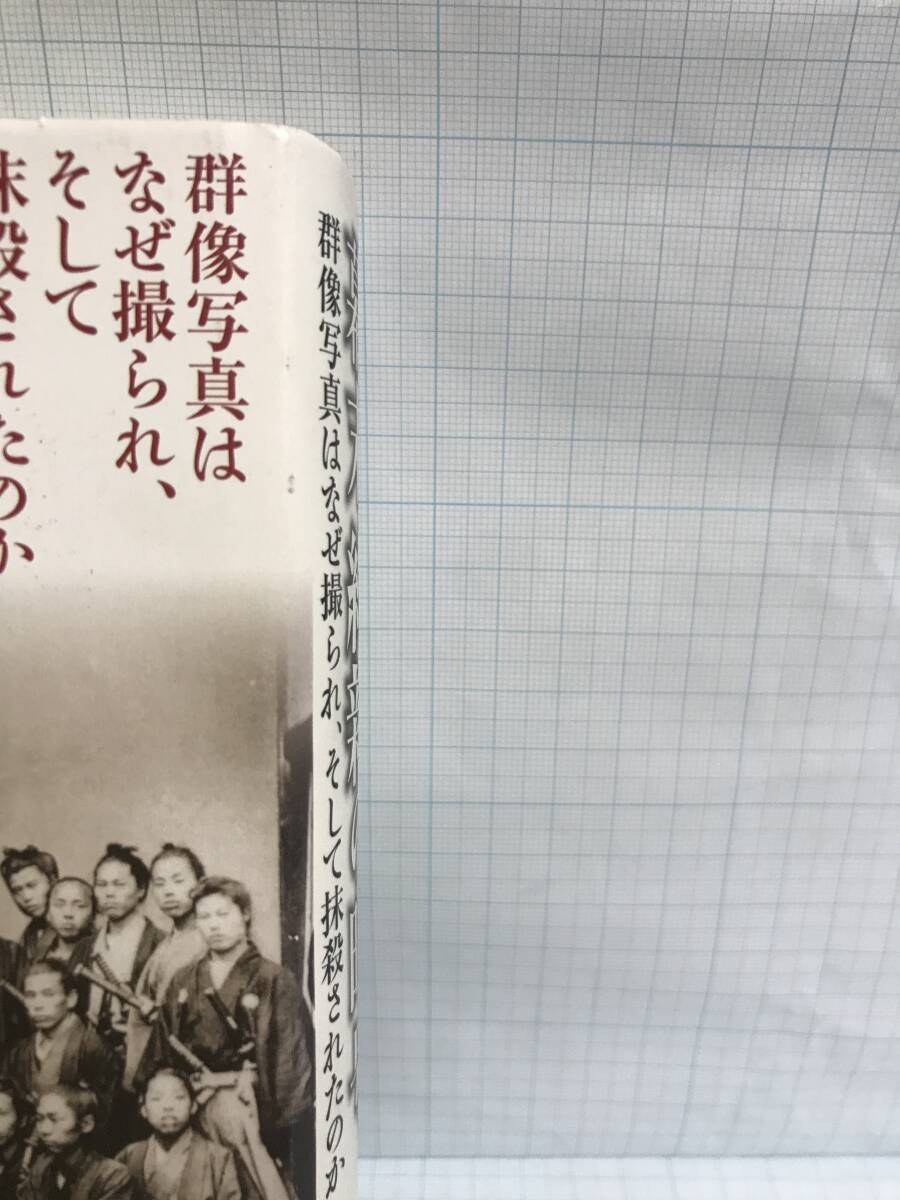 群像写真は
なぜ撮られ、
そして
抹殺されたのか
群像写真はなぜ撮られ、そして抹殺されたのか